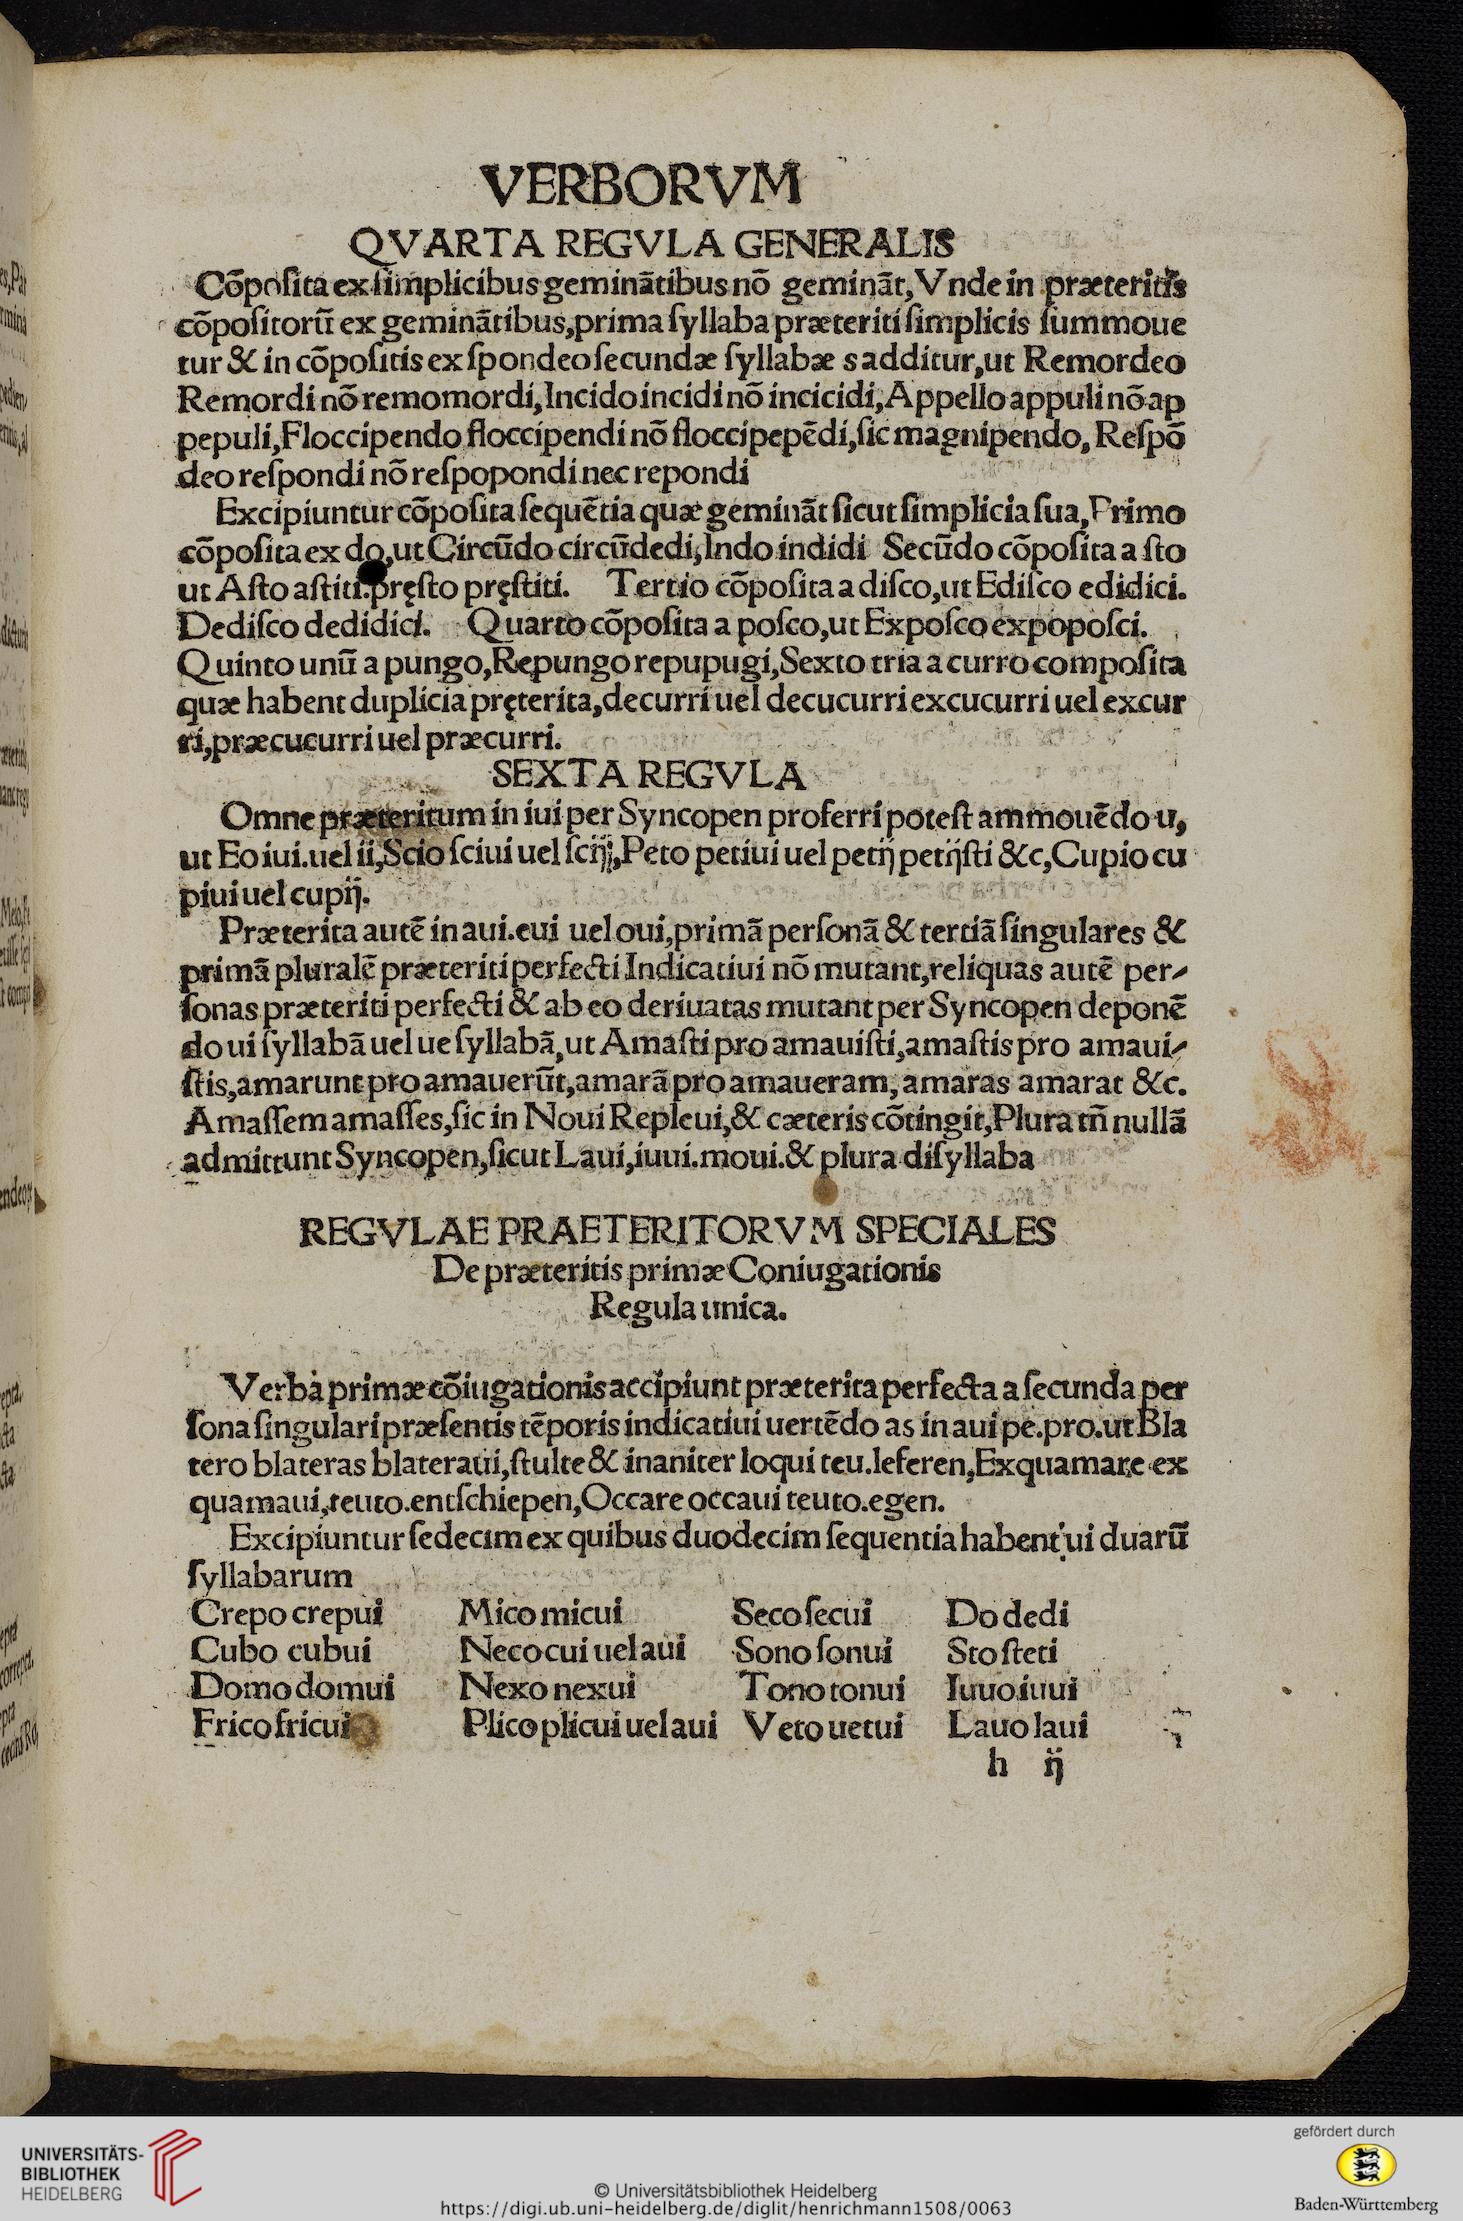 VERBORVM
QVARTA REGVLA GENERALIS
Cõpoſita ex ſimplicibus geminãtibus nõ geminãt, Vnde in præteritis
cõpoſitorũ ex geminãtibus, prima ſyllaba præteriti ſimplicis ſummoue
tur & in cõpoſitis ex ſpondeo ſecundæ ſyllabæ s additur, ut Remordeo
Remordi nõ remomordi, Incido incidi nõ incicidi, Appello appuli nõ ap
pepuli, Floccipendo floccipendi nõ floccipepẽdi, ſic magnipendo, Reſpõ
deo reſpondi nõ reſpopondi nec repondi
Excipiuntur cõpoſita ſequẽtia quæ geminãt ſicut ſimplicia ſua, Primo
cõpoſita ex do, ut Circũdo circũdedi, Indo indidi Secũdo cõpoſita a ſto
ut Aſto aſtiti. pręſto pręſtiti. Tertio cõpoſita a diſco, ut Ediſco edidici.
Dediſco dedidici. Quarto cõpoſita a poſco, ut Expoſco expopoſci.
Quinto unũ a pungo, Repungo repupugi, Sexto tria a curro compoſita
quæ habent duplicia pręterita, decurri uel decucurri excucurri uel excur
ri, præcucurri uel præcurri.
SEXTA REGVLA
Omne præteritum in iui per Syncopen proferri poteſt ammouẽdo u,
ut Eo iui. uel ii, Scio ſciui uel ſcij, Peto petiui uel petij petijſti &c, Cupio cu
piui uel cupij.
Præterita autẽ in aui. eui uel oui, primã perſonã & tertiã ſingulares &
primã pluralẽ præteriti perfecti Indicatiui nõ mutant, reliquas autẽ per-
ſonas præteriti perfecti & ab eo deriuatas mutant per Syncopen deponẽ
do ui ſyllabã uel ue ſyllabã, ut Amaſti pro amauiſti, amaſtis pro amaui-
ſtis, amarunt pro amauerũt, amarã pro amaueram, amaras amarat &c.
Amaſſem amaſſes, ſic in Noui Repleui, & cæteris cõtingit, Plura tñ nullã
admittunt Syncopen, ſicut Laui, iuui. moui. & plura diſyllaba
REGVLAE PRAETERITORVM SPECIALES
De præteritis primæ Coniugationis
Regula unica.
Verba primæ cõiugationis accipiunt præterita perfecta a ſecunda per
ſona ſingulari præſentis tẽporis indicatiui uertẽdo as in aui pe. pro. ut Bla
tero blateras blateraui, ſtulte & inaniter loqui teu. leferen, Exquamare ex
quamaui, teuto. entſchiepen, Occare occaui teuto. egen.
Excipiuntur ſedecim ex quibus duodecim ſequentia habent ui duarũ
ſyllabarum
Crepo crepui Mico micui Seco ſecui Do dedi
Cubo cubui Neco cui uel aui Sono ſonui Sto ſteti
Domo domui Nexo nexui Tono tonui Iuuo iuui
Frico fricui Plico plicui uel aui Veto uetui Lauo laui
h ij
UNIVERSITÄTS-
BIBLIOTHEK
HEIDELBERG
© Universitätsbibliothek Heidelberg
https://digi.ub.uni-heidelberg.de/diglit/henrichmann1508/0063
gefördert durch
Baden-Württemberg